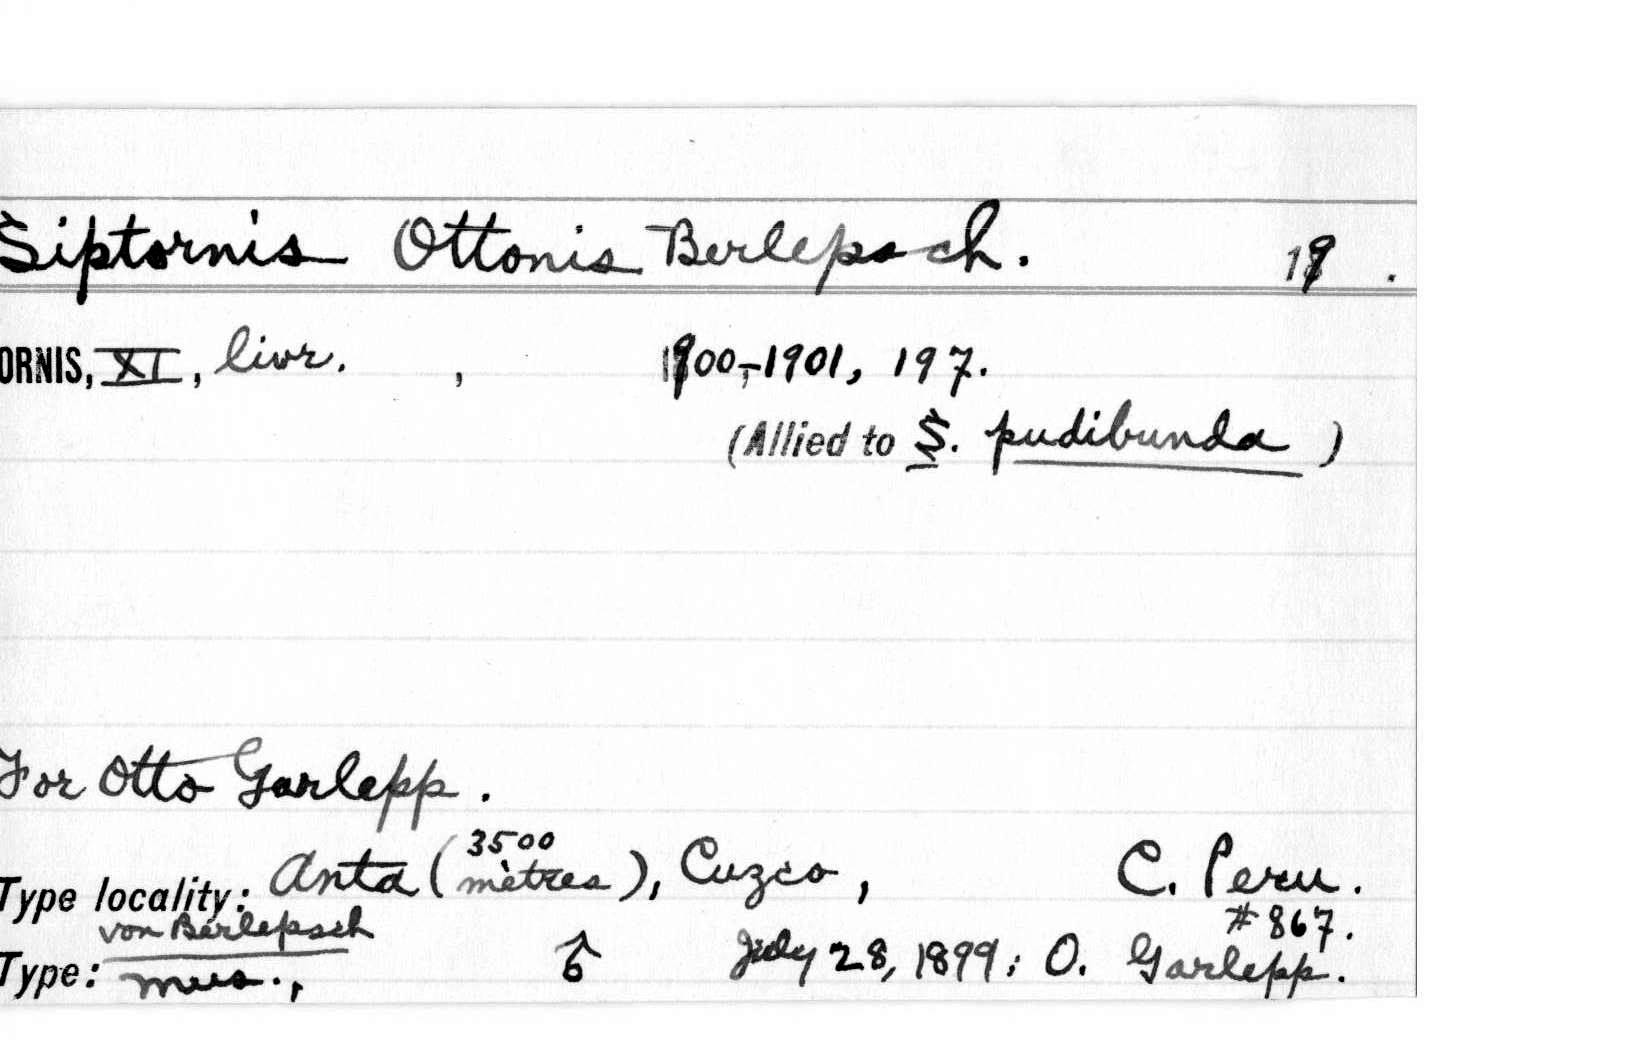 Siptornis Ottonis Berlepsch. 19 .
ORNIS, XI, livr. , 1900,-1901, 197.
(Allied to S. pudibunda )
For Otto Garlepp.
Type locality: Anta (3500 mètres), Cuzco, C. Peru.
von Berlepsch #867.
Type: mus., ♂ July 28, 1899; O. Garlepp.